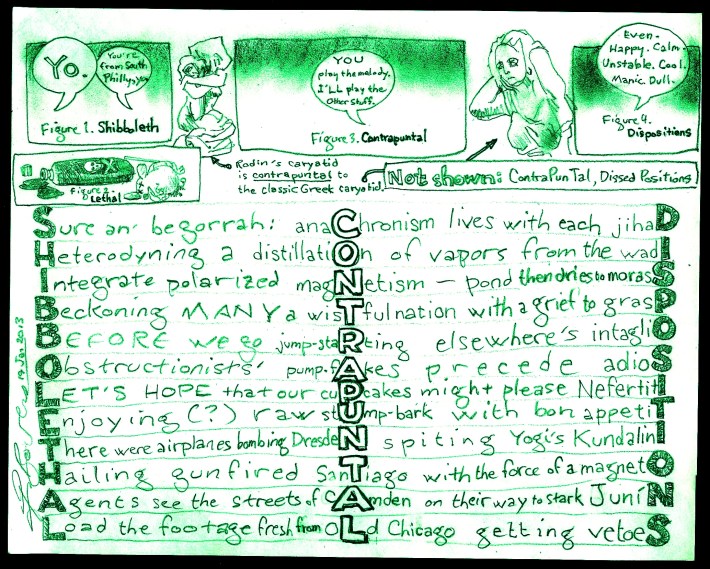 Yo.
You're
from South
Philly, yo.
Figure 1. Shibboleth
YOU
play the melody.
I'LL play the
Other Stuff.
Figure 3. Contrapuntal
Even.
Happy. Calm.
Unstable. Cool.
Manic. Dull.
Figure 4.
Dispositions
Figure 2.
Lethal
Rodin's caryatid
is contrapuntal to
the classic Greek caryatid.
Not shown: ContraPunTal, Dissed Positions
Sure an' begorrah: anaChronism lives with each jihaD
Heterodyning a distillatiOn of vapors from the wadI
Integrate polarized magNetism — pond then dries to morasS
Beckoning MANY a wisTful nation with a grief to grasP
BEFORE we go jump-staRting elsewhere's intagliO
Obstructionists' pump-fAkes precede adioS
LET'S HOPE that our cuPcakes might please NefertitI
Enjoying (?) raw stUmp-bark with bon appetiT
There were airplanes bombing DresdeN spiting Yogi's KundalinI
Hailing gunfired SanTiago with the force of a magnetO
Agents see the streets of CAmden on their way to stark JuníN
Load the footage fresh from OLd Chicago getting vetoeS